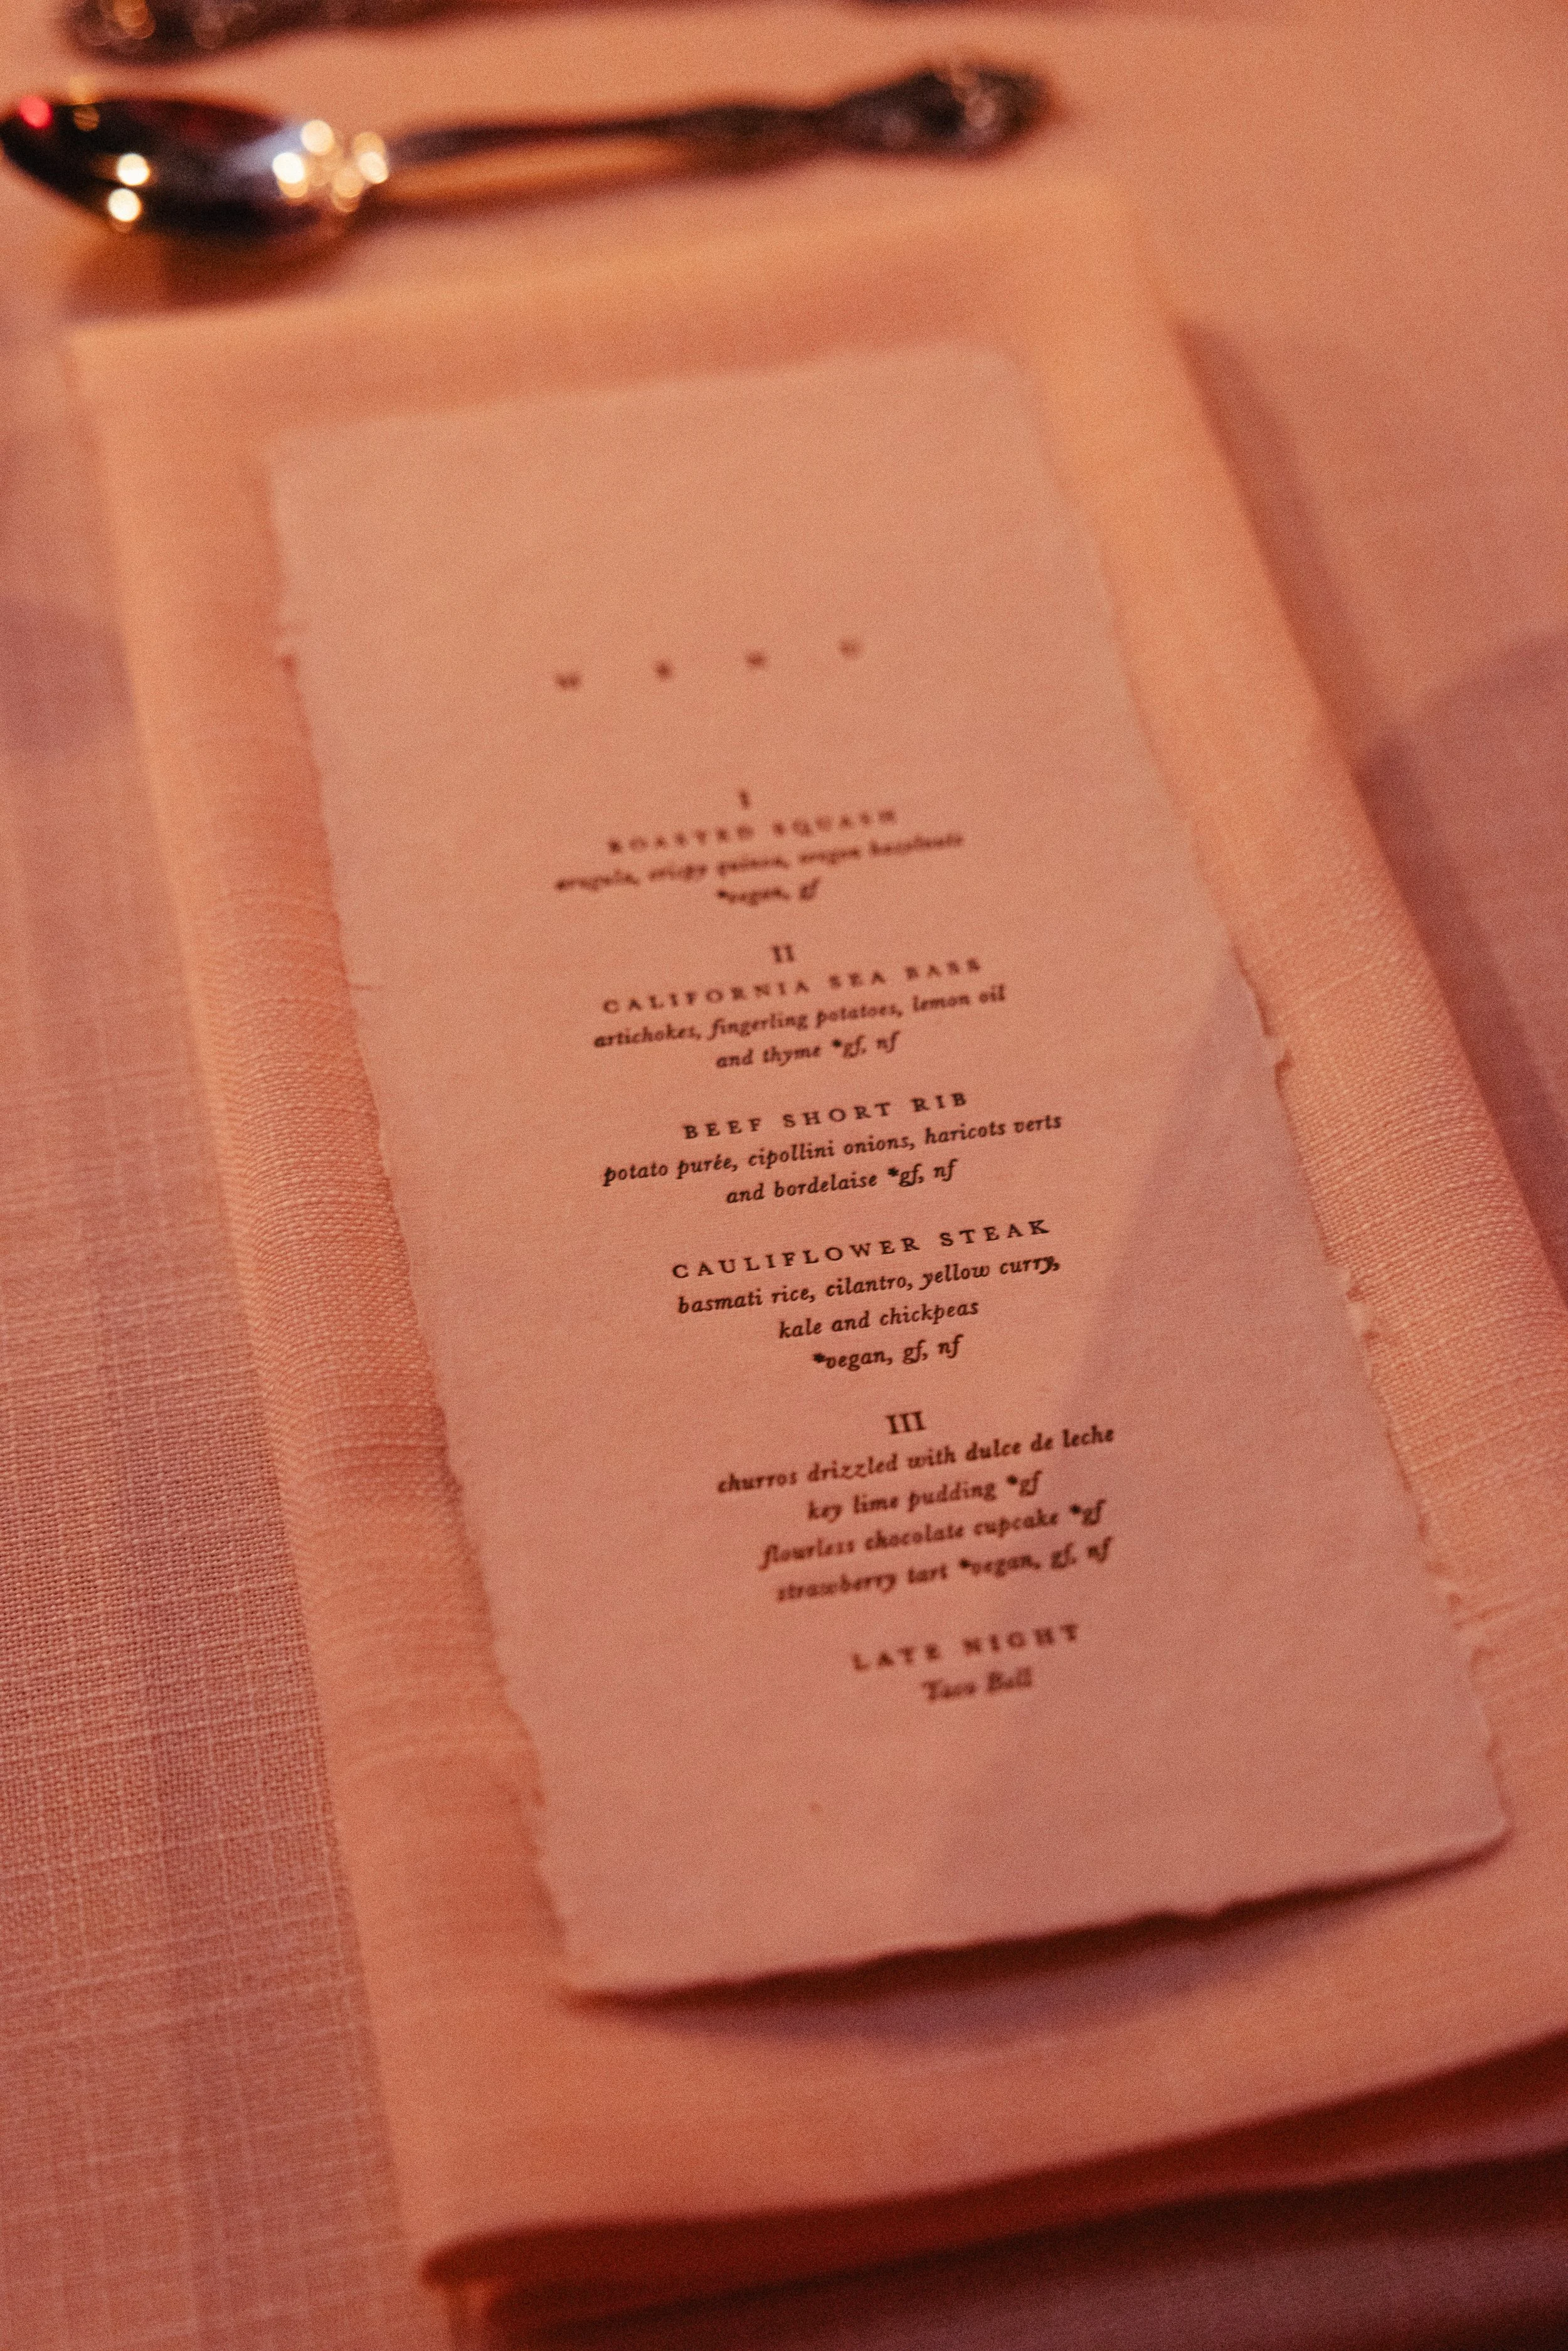 MENU
I
ROASTED SQUASH
arugula, crispy quinoa, oregon hazelnuts
*vegan, gf
II
CALIFORNIA SEA BASS
artichokes, fingerling potatoes, lemon oil
and thyme *gf, nf
BEEF SHORT RIB
potato purée, cipollini onions, haricots verts
and bordelaise *gf, nf
CAULIFLOWER STEAK
basmati rice, cilantro, yellow curry,
kale and chickpeas
*vegan, gf, nf
III
churros drizzled with dulce de leche
key lime pudding *gf
flourless chocolate cupcake *gf
strawberry tart *vegan, gf, nf
LATE NIGHT
Taco Bell